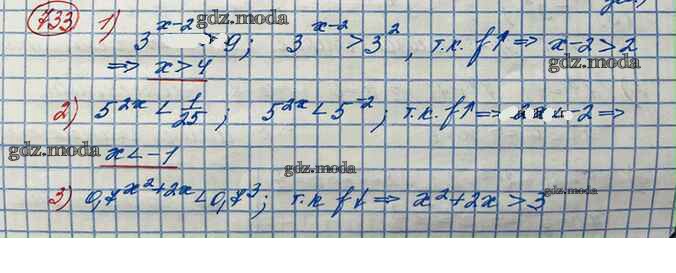 733 1) 3^(x-2) > 9; 3^(x-2) > 3^2, т.к. f↑ ⇒ x-2 > 2
⇒ x > 4
2) 5^(2x) < 1/25; 5^(2x) < 5^(-2); т.к. f↑ ⇒ 2x < -2 ⇒
x < -1
3) 0,7^(x^2+2x) < 0,7^3; т.к f↓ ⇒ x^2+2x > 3
gdz.moda
gdz.moda
gdz.moda
gdz.moda
gdz.moda
gdz.moda
gdz.moda